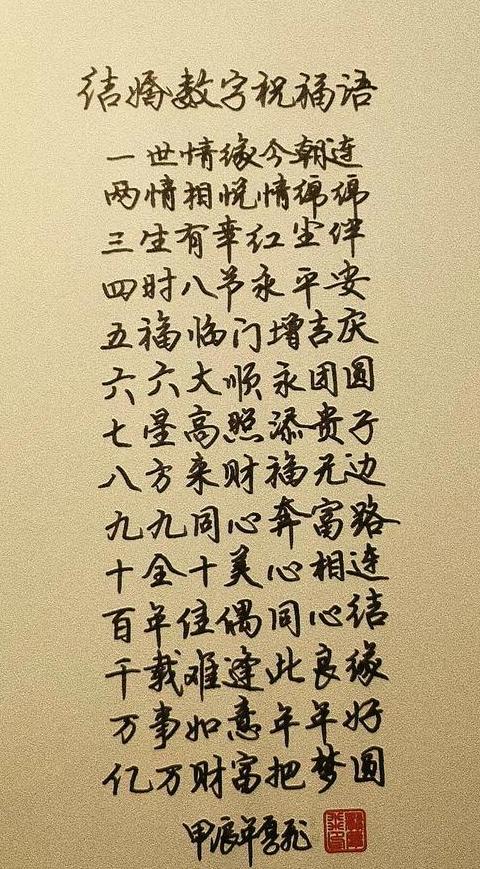 结婚数字祝福语
一世情缘今朝连
两情相悦情绵绵
三生有幸红尘伴
四时八节永平安
五福临门增吉庆
六六大顺永团圆
七星高照添贵子
八方来财福无边
九九同心奔富路
十全十美心相连
百年佳偶同心结
千载难逢此良缘
万事如意年年好
亿万财富把梦圆
甲辰年夏飞